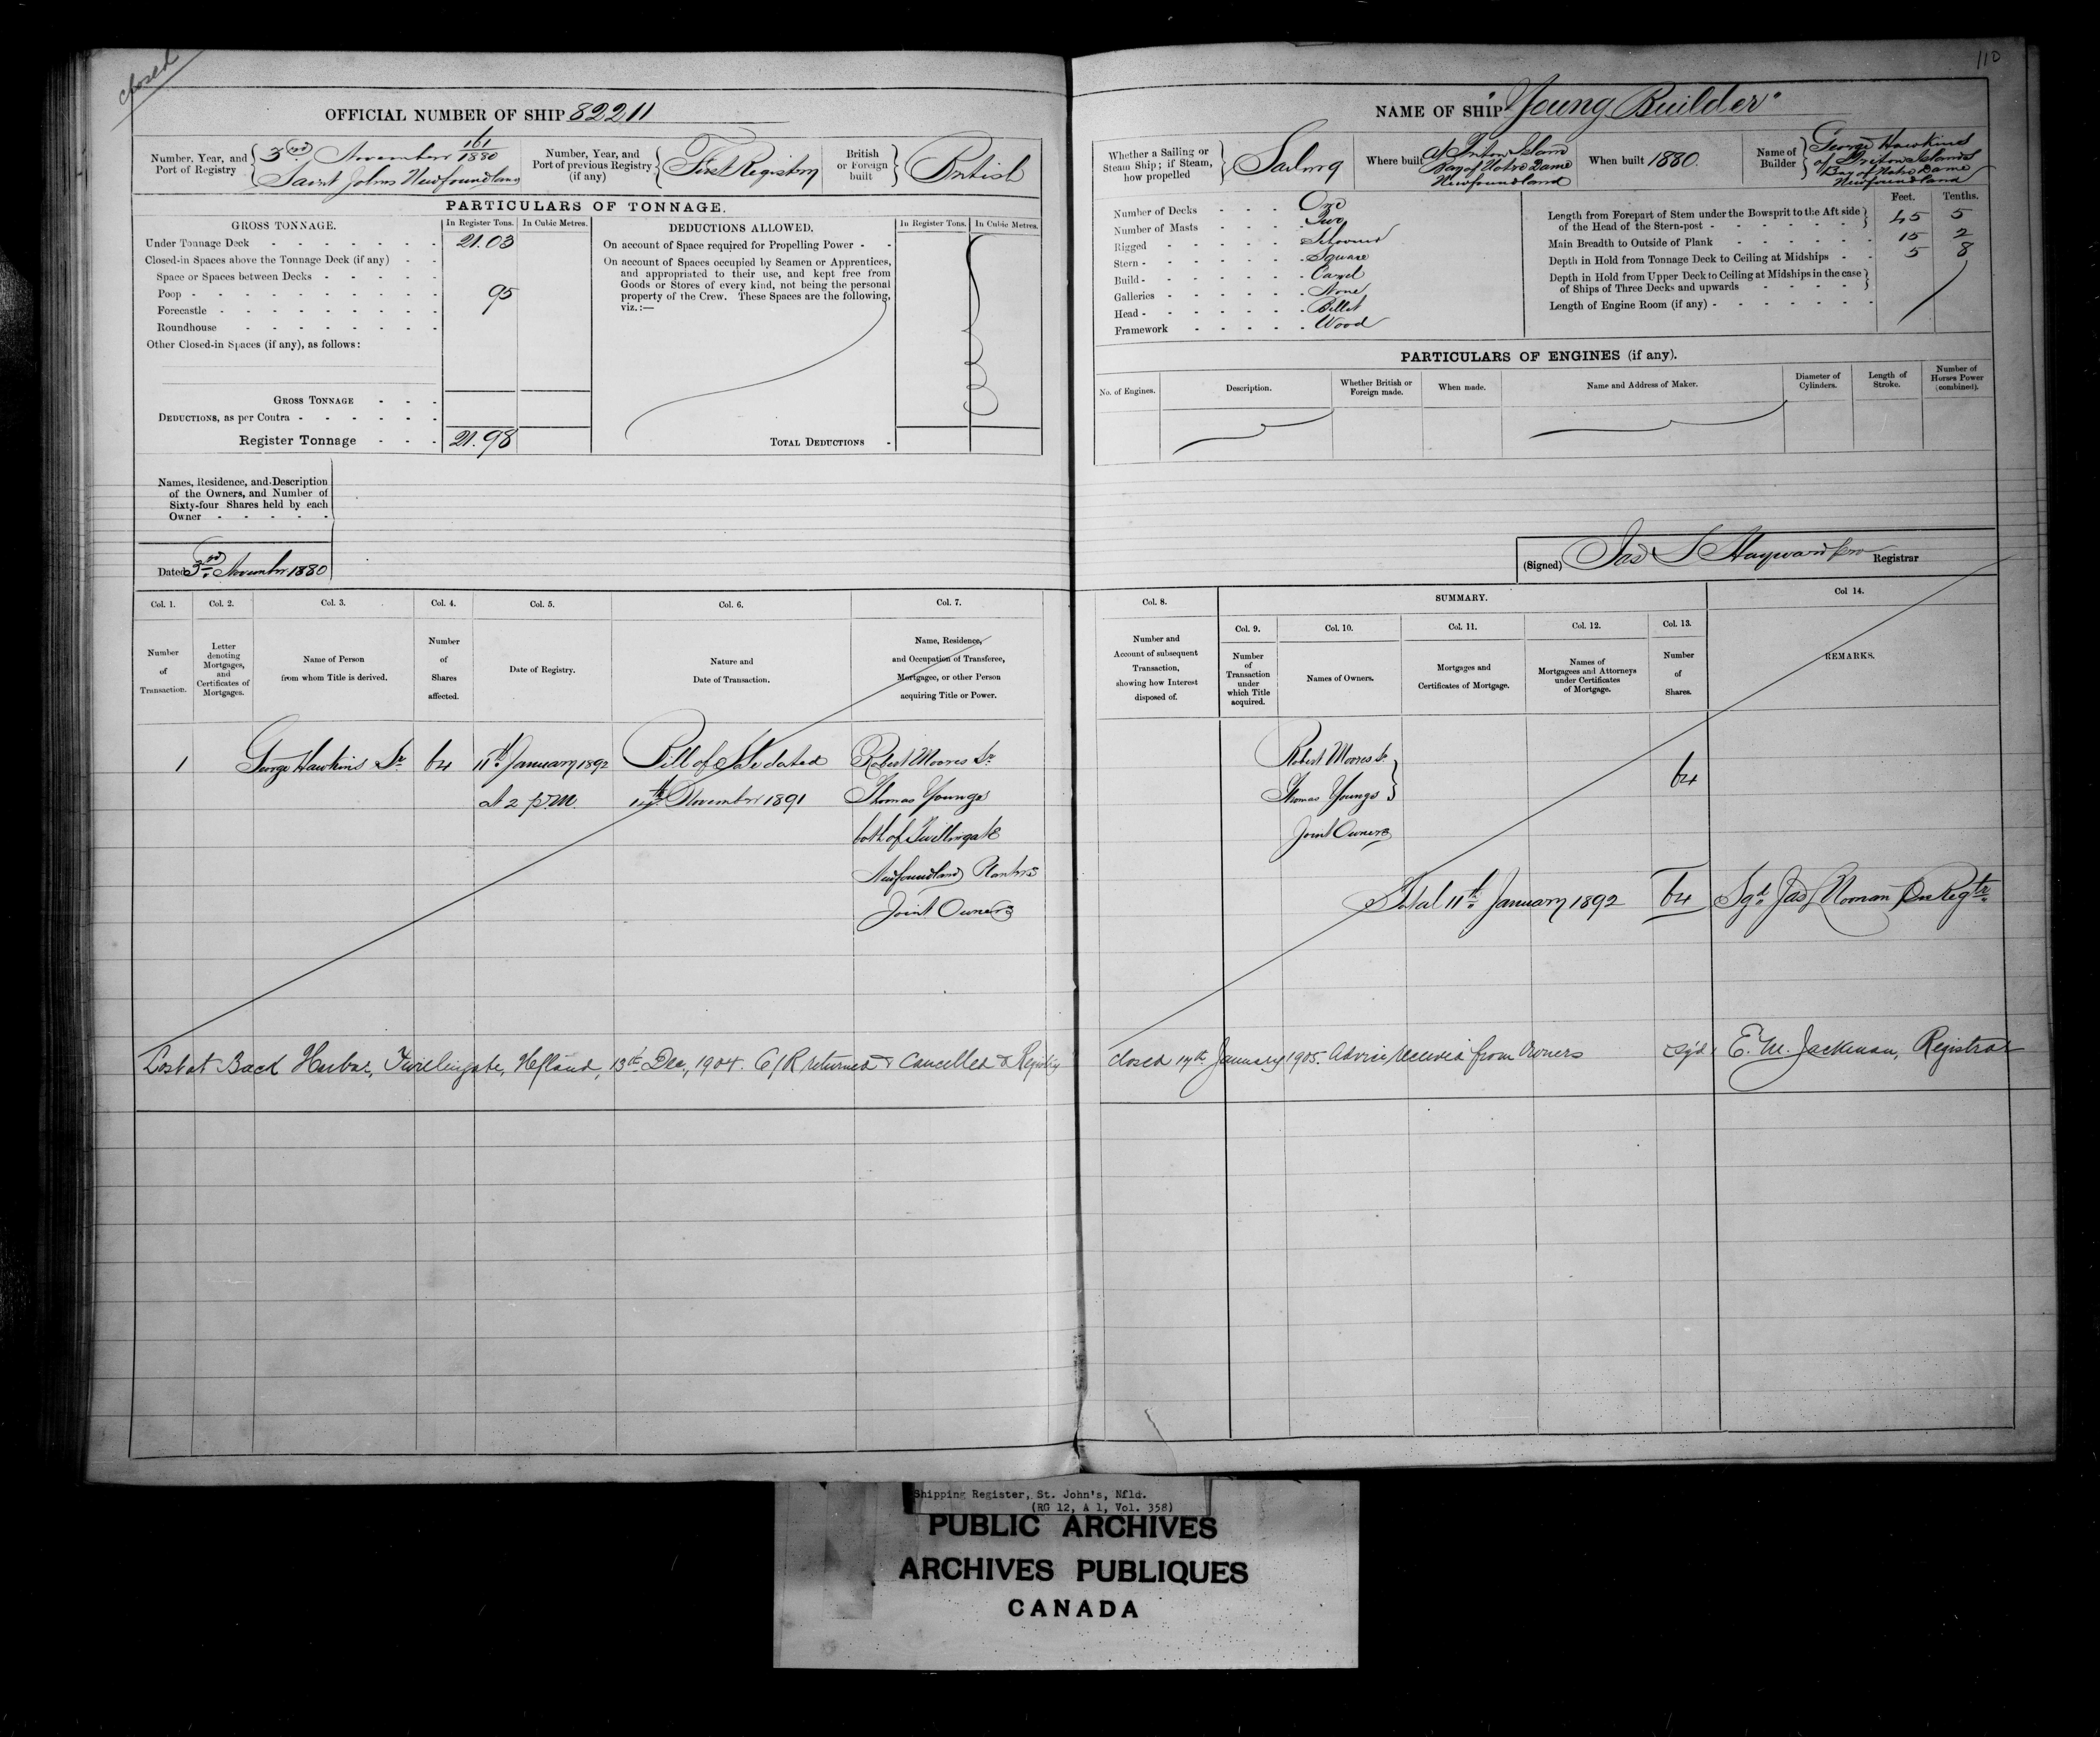 closed
110
OFFICIAL NUMBER OF SHIP 82211
NAME OF SHIP "Young Builder"
Number, Year, and Port of Registry { 3rd November 161/1880
Saint Johns Newfoundland
Number, Year, and Port of previous Registry (if any) { First Registry
British or Foreign built } British
Whether a Sailing or Steam Ship; if Steam, how propelled } Sailing
Where built At Triton Island
Bay of Notre Dame
Newfoundland
When built 1880.
Name of Builder } George Hawkins
of Triton Islands
Bay of Notre Dame
Newfoundland
PARTICULARS OF TONNAGE.
GROSS TONNAGE.
In Register Tons.
In Cubic Metres.
Under Tonnage Deck 21.03
Closed-in Spaces above the Tonnage Deck (if any)
Space or Spaces between Decks
Poop 95
Forecastle
Roundhouse
Other Closed-in Spaces (if any), as follows:
GROSS TONNAGE
DEDUCTIONS, as per Contra
Register Tonnage 21.98
DEDUCTIONS ALLOWED.
In Register Tons.
In Cubic Metres.
On account of Space required for Propelling Power
On account of Spaces occupied by Seamen or Apprentices,
and appropriated to their use, and kept free from
Goods or Stores of every kind, not being the personal
property of the Crew. These Spaces are the following,
viz.:—
TOTAL DEDUCTIONS
Number of Decks One
Number of Masts Two
Rigged Schooner
Stern Square
Build Carvel
Galleries None
Head Billet
Framework Wood
Feet. Tenths.
Length from Forepart of Stem under the Bowsprit to the Aft side
of the Head of the Stern-post 45 5
Main Breadth to Outside of Plank 15 2
Depth in Hold from Tonnage Deck to Ceiling at Midships 5 8
Depth in Hold from Upper Deck to Ceiling at Midships in the case
of Ships of Three Decks and upwards
Length of Engine Room (if any)
PARTICULARS OF ENGINES (if any).
No. of Engines.
Description.
Whether British or Foreign made.
When made.
Name and Address of Maker.
Diameter of Cylinders.
Length of Stroke.
Number of Horses Power (combined).
Names, Residence, and Description
of the Owners, and Number of
Sixty-four Shares held by each
Owner
Dated 3rd November 1880
(Signed) Jas S Hayward Registrar
Col. 1. Col. 2. Col. 3. Col. 4. Col. 5. Col. 6. Col. 7.
Number of Transaction.
Letter denoting Mortgages, and Certificates of Mortgages.
Name of Person from whom Title is derived.
Number of Shares affected.
Date of Registry.
Nature and Date of Transaction.
Name, Residence, and Occupation of Transferee, Mortgagee, or other Person acquiring Title or Power.
Col. 8.
Number and Account of subsequent Transaction, showing how Interest disposed of.
SUMMARY.
Col. 9. Col. 10. Col. 11. Col. 12. Col. 13. Col 14.
Number of Transaction under which Title acquired.
Names of Owners.
Mortgages and Certificates of Mortgage.
Names of Mortgagees and Attorneys under Certificates of Mortgage.
Number of Shares.
REMARKS.
1 George Hawkins Sr 64 11th January 1892 Bill of Sale dated Robert Moores Sr
at 2 p.m. 14th November 1891 Thomas Youngs
both of Twillingate
Newfoundland Planters
Joint Owners
Robert Moores Sr
Thomas Youngs
Joint Owners
64
Total 11th January 1892 64 Sgd. Jas Noonan Regtr.
Lost at Back Harbor, Twillingate, Nfland, 13th Dec, 1904. C/R returned & Cancelled & Registry
closed 17th January 1905. Advice received from Owners sg'd E. M. Jackman, Registrar
Shipping Register, St. John's, Nfld.
(RG 12, A 1, Vol. 358)
PUBLIC ARCHIVES
ARCHIVES PUBLIQUES
CANADA